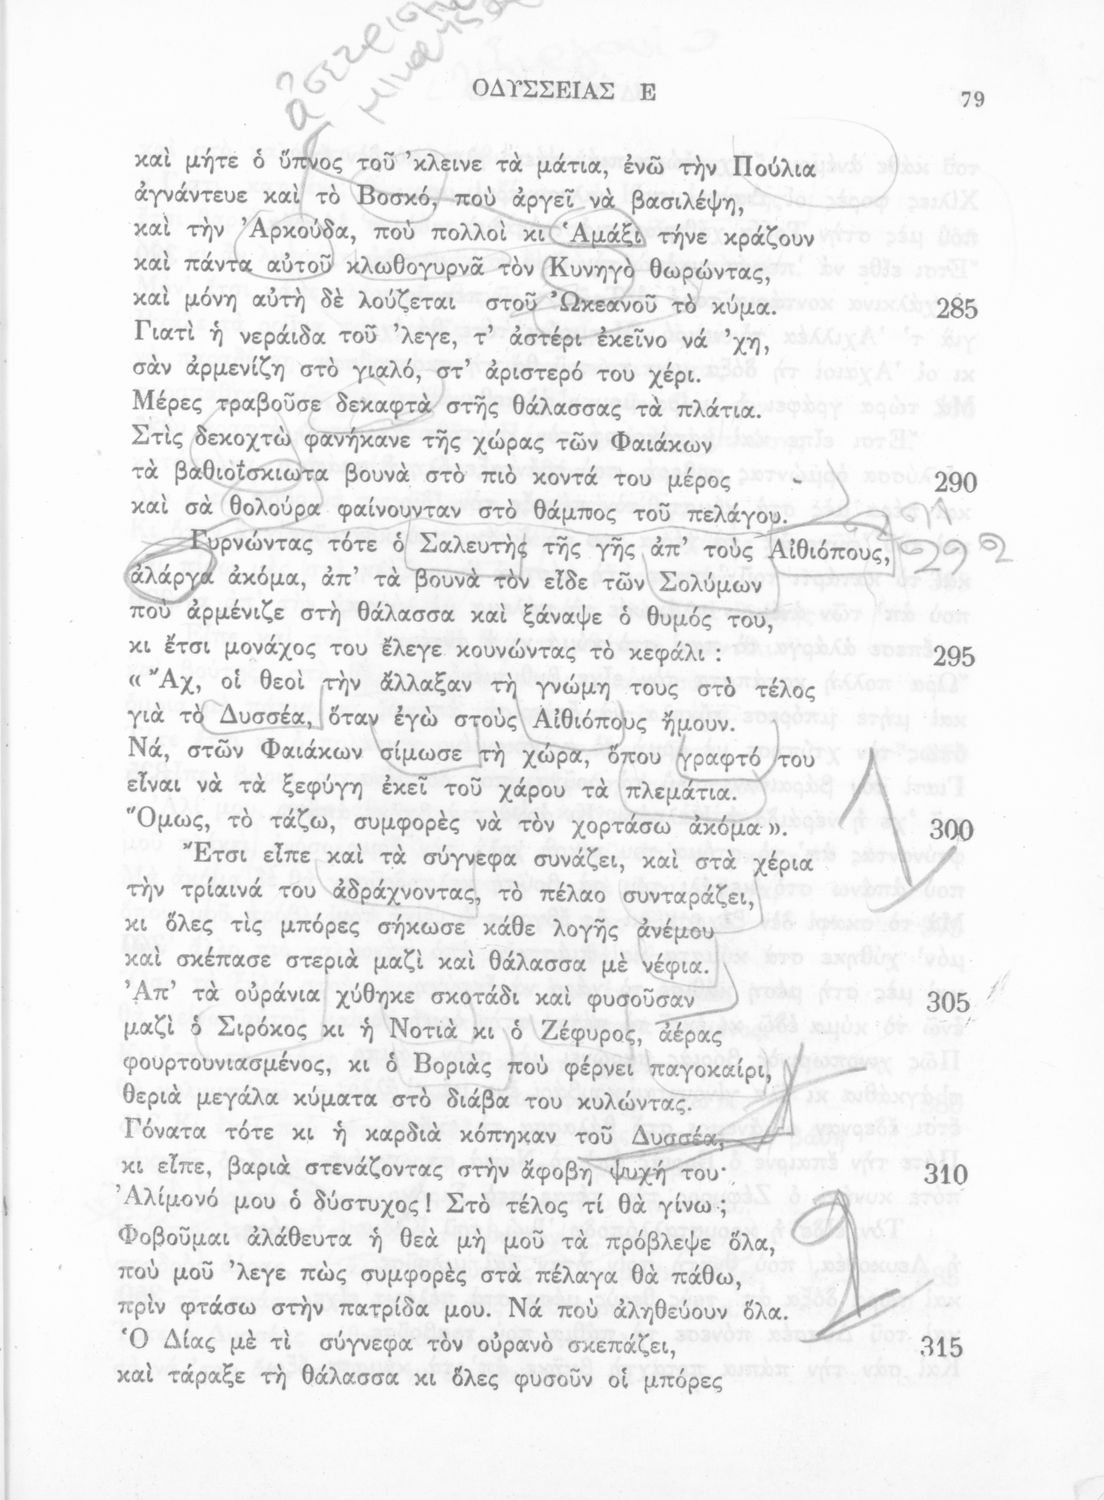 ΟΔΥΣΣΕΙΑΣ Ε
79
καὶ μήτε ὁ ὕπνος τοῦ ’κλεινε τὰ μάτια, ἐνῶ τὴν Πούλια
ἀγνάντευε καὶ τὸ Βοσκό, ποὺ ἀργεῖ νὰ βασιλέψη,
καὶ τὴν Ἀρκούδα, ποὺ πολλοὶ κι Ἁμάξι τήνε κράζουν
καὶ πάντα αὐτοῦ κλωθογυρνᾶ τὸν Κυνηγὸ θωρώντας,
καὶ μόνη αὐτὴ δὲ λούζεται στοῦ Ὠκεανοῦ τὸ κύμα. 285
Γιατὶ ἡ νεράιδα τοῦ ’λεγε, τ’ ἀστέρι ἐκεῖνο νά ’χη,
σὰν ἀρμενίζη στὸ γιαλό, στ’ ἀριστερό του χέρι.
Μέρες τραβοῦσε δεκαφτὰ στῆς θάλασσας τὰ πλάτια.
Στὶς δεκοχτὼ φανήκανε τῆς χώρας τῶν Φαιάκων
τὰ βαθιοΐσκιωτα βουνὰ στὸ πιὸ κοντά του μέρος 290
καὶ σὰ θολούρα φαίνουνταν στὸ θάμπος τοῦ πελάγου.
Γυρνώντας τότε ὁ Σαλευτὴς τῆς γῆς ἀπ’ τοὺς Αἰθιόπους,
ἀλάργα ἀκόμα, ἀπ’ τὰ βουνὰ τὸν εἶδε τῶν Σολύμων
ποὺ ἀρμένιζε στὴ θάλασσα καὶ ξάναψε ὁ θυμός του,
κι ἔτσι μονάχος του ἔλεγε κουνώντας τὸ κεφάλι : 295
« Ἄχ, οἱ θεοὶ τὴν ἄλλαξαν τὴ γνώμη τους στὸ τέλος
γιὰ τὸ Δυσσέα, ὅταν ἐγὼ στοὺς Αἰθιόπους ἤμουν.
Νά, στῶν Φαιάκων σίμωσε τὴ χώρα, ὅπου γραφτό του
εἶναι νὰ τὰ ξεφύγη ἐκεῖ τοῦ χάρου τὰ πλεμάτια.
Ὅμως, τὸ τάζω, συμφορὲς νὰ τὸν χορτάσω ἀκόμα ». 300
Ἔτσι εἶπε καὶ τὰ σύγνεφα συνάζει, καὶ στὰ χέρια
τὴν τρίαινά του ἀδράχνοντας, τὸ πέλαο συνταράζει,
κι ὅλες τὶς μπόρες σήκωσε κάθε λογῆς ἀνέμου
καὶ σκέπασε στεριὰ μαζὶ καὶ θάλασσα μὲ νέφια.
Ἀπ’ τὰ οὐράνια χύθηκε σκοτάδι καὶ φυσοῦσαν 305
μαζὶ ὁ Σιρόκος κι ἡ Νοτιὰ κι ὁ Ζέφυρος, ἀέρας
φουρτουνιασμένος, κι ὁ Βοριὰς ποὺ φέρνει παγοκαίρι,
θεριὰ μεγάλα κύματα στὸ διάβα του κυλώντας.
Γόνατα τότε κι ἡ καρδιὰ κόπηκαν τοῦ Δυσσέα,
κι εἶπε, βαριὰ στενάζοντας στὴν ἄφοβη ψυχή του· 310
Ἀλίμονό μου ὁ δύστυχος! Στὸ τέλος τί θὰ γίνω ;
Φοβοῦμαι ἀλάθευτα ἡ θεὰ μὴ μοῦ τὰ πρόβλεψε ὅλα,
ποὺ μοῦ ’λεγε πὼς συμφορὲς στὰ πέλαγα θὰ πάθω,
πρὶν φτάσω στὴν πατρίδα μου. Νά ποὺ ἀληθεύουν ὅλα.
Ὁ Δίας μὲ τὶ σύγνεφα τὸν οὐρανὸ σκεπάζει, 315
καὶ τάραξε τὴ θάλασσα κι ὅλες φυσοῦν οἱ μπόρες
1
2